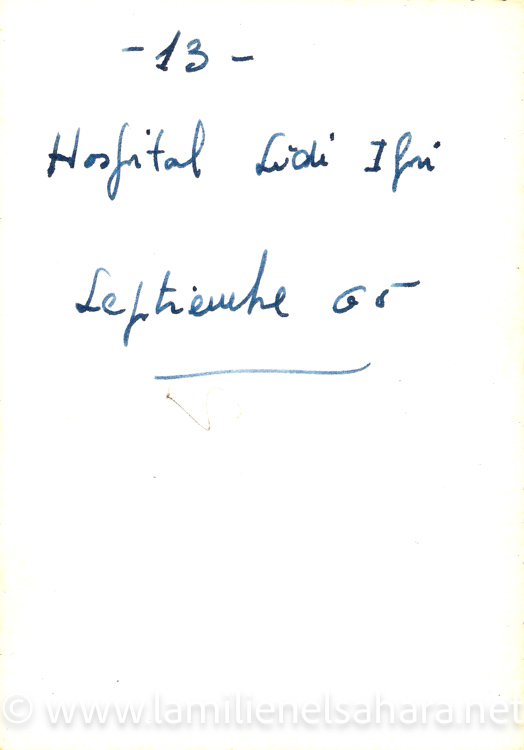 -13-
Hospital Sidi Ifni
Septiembre 65
© www.lamilienelsahara.net